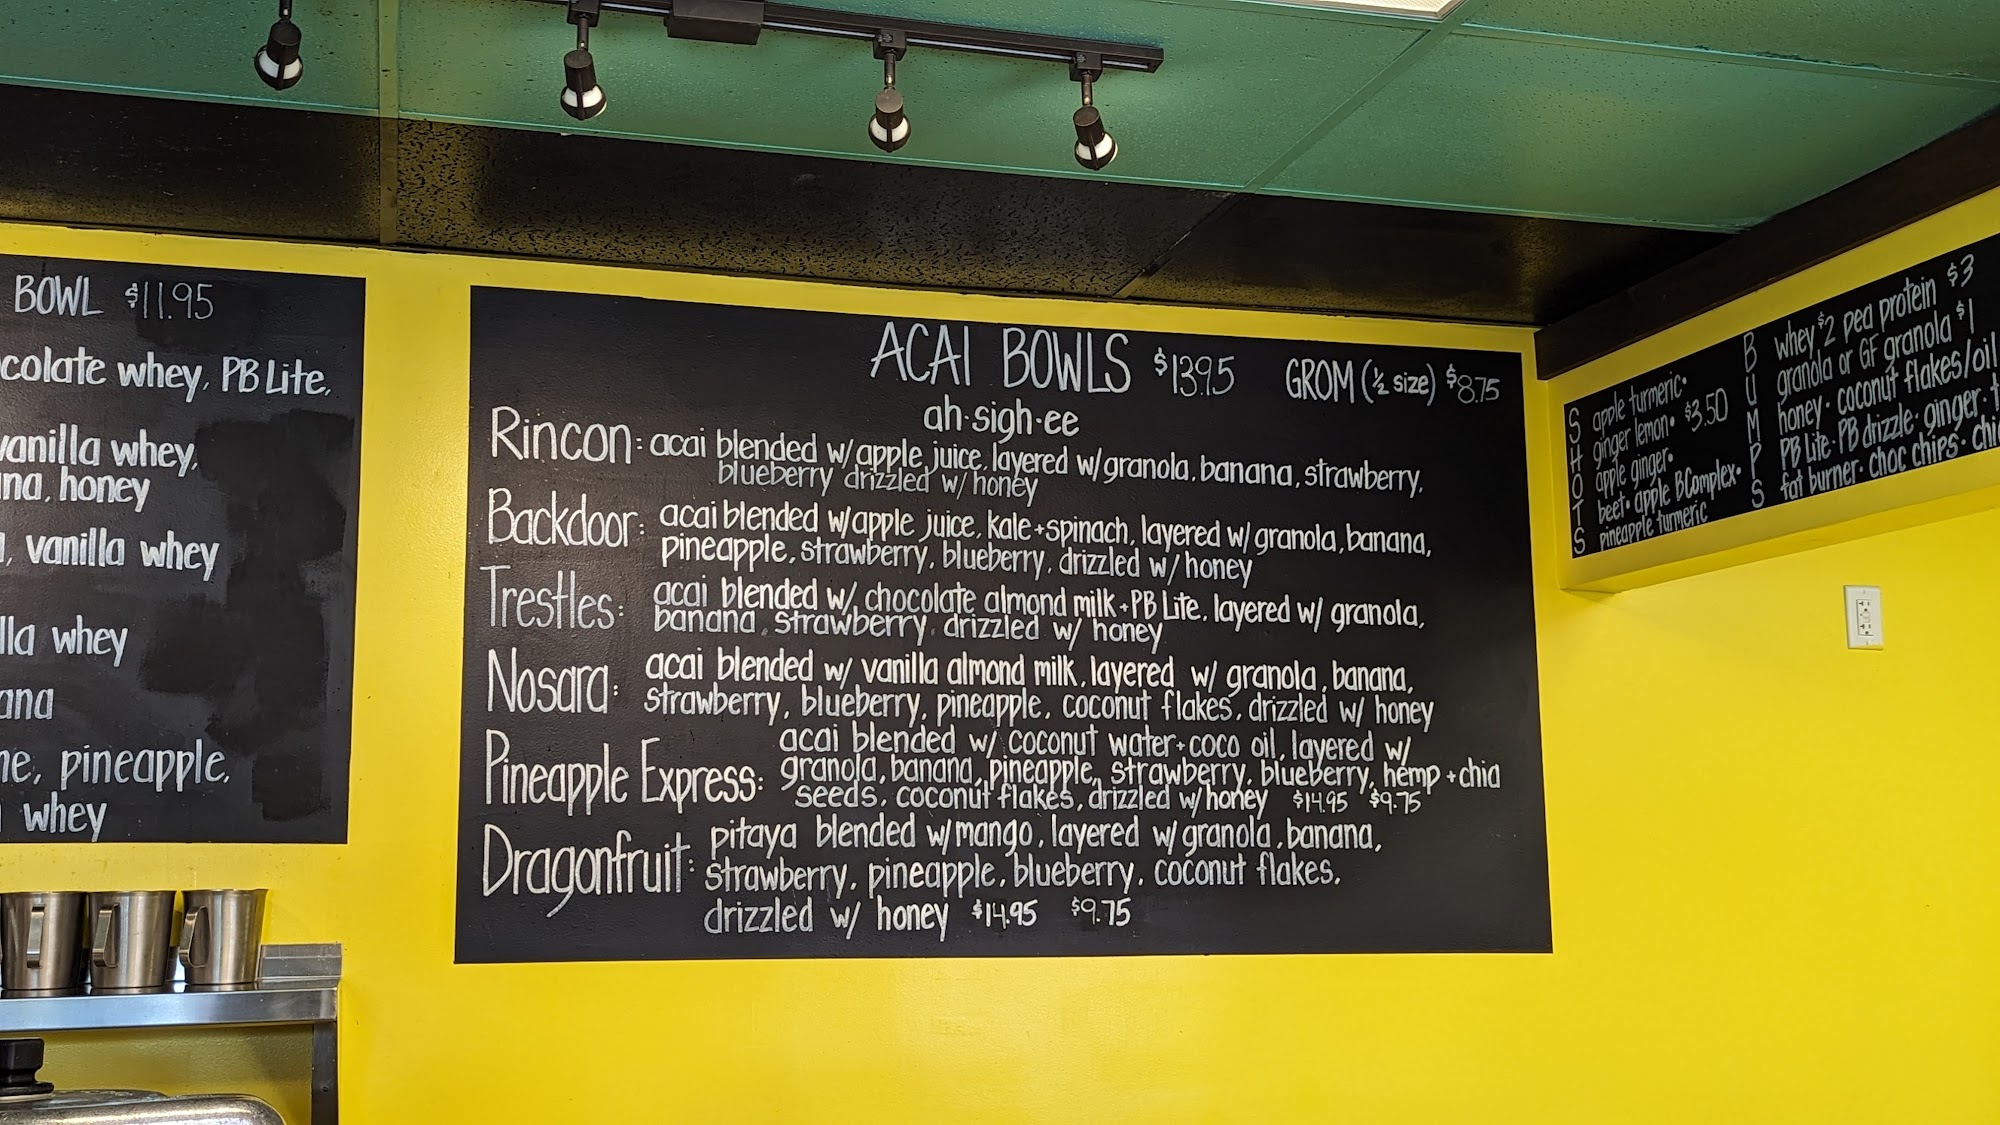 BOWL $11.95
colate whey, PB Lite,
vanilla whey,
na, honey
, vanilla whey
lla whey
ana
ne, pineapple,
whey
ACAI BOWLS $13.95 GROM (1/2 size) $8.75
ah·sigh·ee
Rincon: acai blended w/apple juice, layered w/granola, banana, strawberry,
blueberry drizzled w/ honey
Backdoor: acai blended w/apple juice, kale + spinach, layered w/ granola, banana,
pineapple, strawberry, blueberry, drizzled w/ honey
Trestles: acai blended w/ chocolate almond milk + PB Lite, layered w/ granola,
banana, strawberry, drizzled w/ honey
Nosara: acai blended w/ vanilla almond milk, layered w/ granola, banana,
strawberry, blueberry, pineapple, coconut flakes, drizzled w/ honey
Pineapple Express: acai blended w/ coconut water + coco oil, layered w/
granola, banana, pineapple, strawberry, blueberry, hemp + chia
seeds, coconut flakes, drizzled w/ honey $14.95 $9.75
Dragonfruit: pitaya blended w/ mango, layered w/ granola, banana,
strawberry, pineapple, blueberry, coconut flakes,
drizzled w/ honey $14.95 $9.75
SHOTS
apple turmeric·
ginger lemon· $3.50
apple ginger·
beet· apple BComplex·
pineapple turmeric
BUMPS
whey $2 pea protein $3
granola or GF granola $1
honey· coconut flakes/oil
PB Lite· PB drizzle· ginger· t
fat burner· choc chips· chi